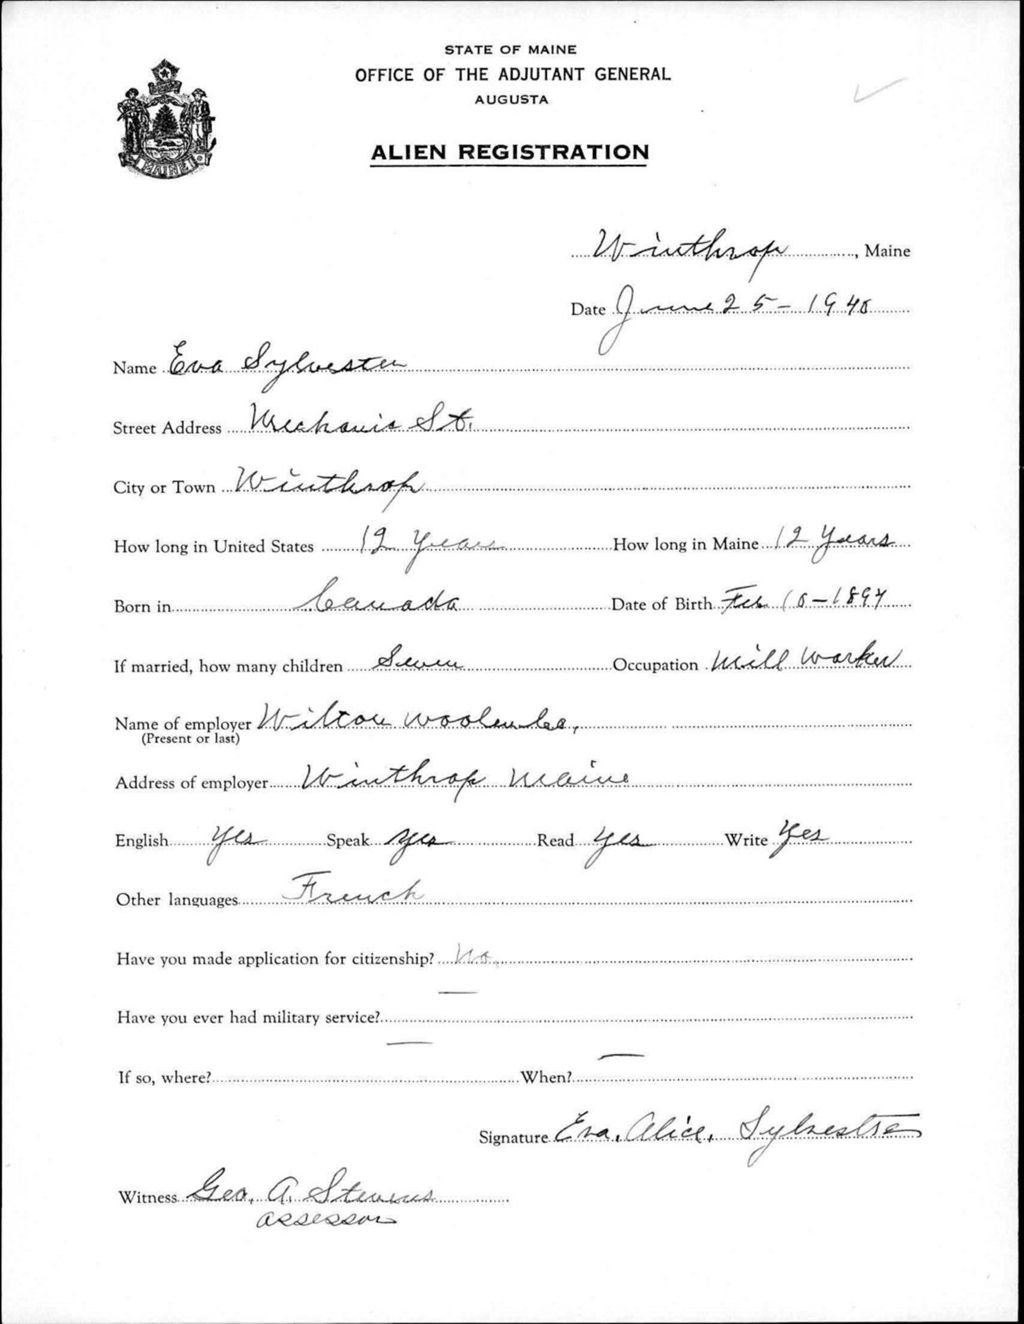 STATE OF MAINE
OFFICE OF THE ADJUTANT GENERAL
AUGUSTA
ALIEN REGISTRATION
MAINE
Winthrop, Maine
Date June 25-1940
Name Eva Sylvester
Street Address Mechanic St.
City or Town Winthrop
How long in United States 12 Years How long in Maine 12 Years
Born in Canada Date of Birth Feb 10-1897
If married, how many children Seven Occupation Mill Worker
Name of employer Wilton Woolen Co,
(Present or last)
Address of employer Winthrop Maine
English Yes Speak Yes Read Yes Write Yes
Other languages French
Have you made application for citizenship? No.
Have you ever had military service? —
If so, where? — When? —
Signature Eva, Alice, Sylvestre
Witness Geo. A. Stevens
Assessor